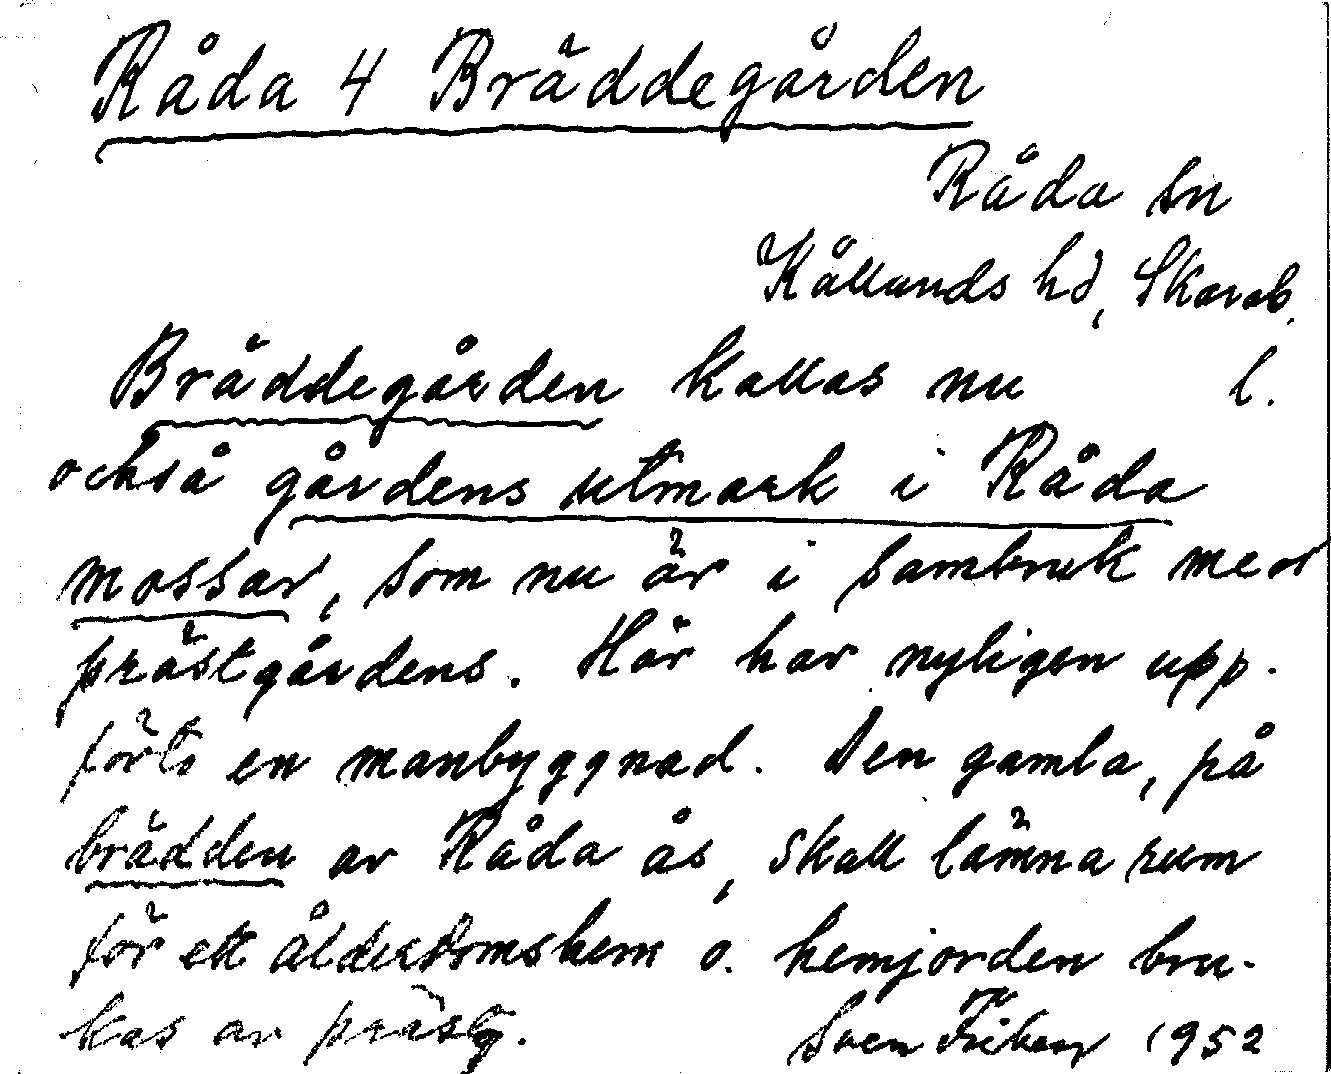 Råda 4 Bräddegården
Råda sn
Kållands hd, Skarab.
Bräddegården kallas nu l.
också gårdens utmark i Råda
mossar, som nu är i sambruk med
prästgårdens. Här har nyligen upp-
förts en manbyggnad. Den gamla, på
brädden av Råda ås, skall lämna rum
för ett ålderdomshem o. hemjorden bru-
kas av prästg. Sven 1952